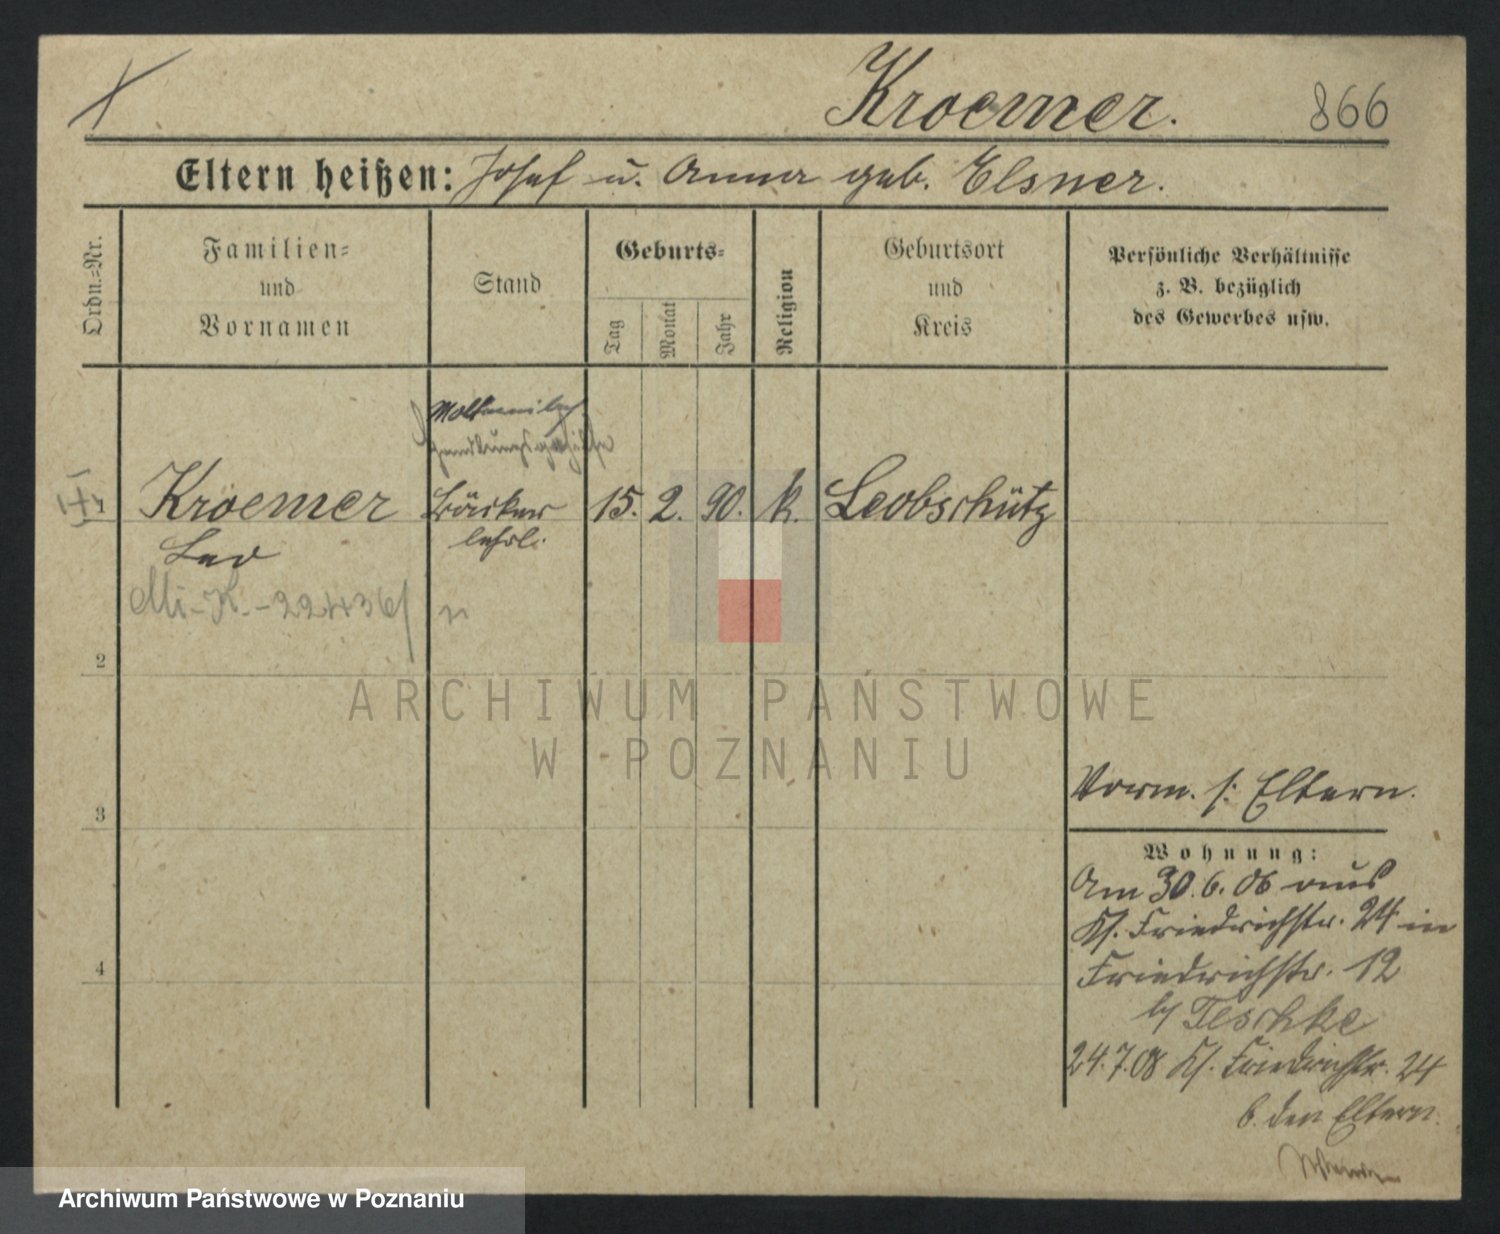 Kroemer.
866
Eltern heißen: Josef u. Anna geb. Elsner.
Ordn.=Nr.
Familien=
und
Vornamen
Stand
Geburts=
Tag
Monat
Jahr
Religion
Geburtsort
und
Kreis
Persönliche Verhältnisse
z. B. bezüglich
des Gewerbes usw.
1
Kroemer
Leo
Bäcker
lehrl.
15. 2. 90. k. Leobschütz
2
3
4
Vorm. s: Eltern.
Wohnung:
Am 30.6.06 aus
Kl. Friedrichstr. 24 in
Friedrichstr. 12
by Teschke
24.7.08 Kl. Friedrichstr. 24
b. den Eltern.
ARCHIWUM PAŃSTWOWE
W POZNANIU
Archiwum Państwowe w Poznaniu